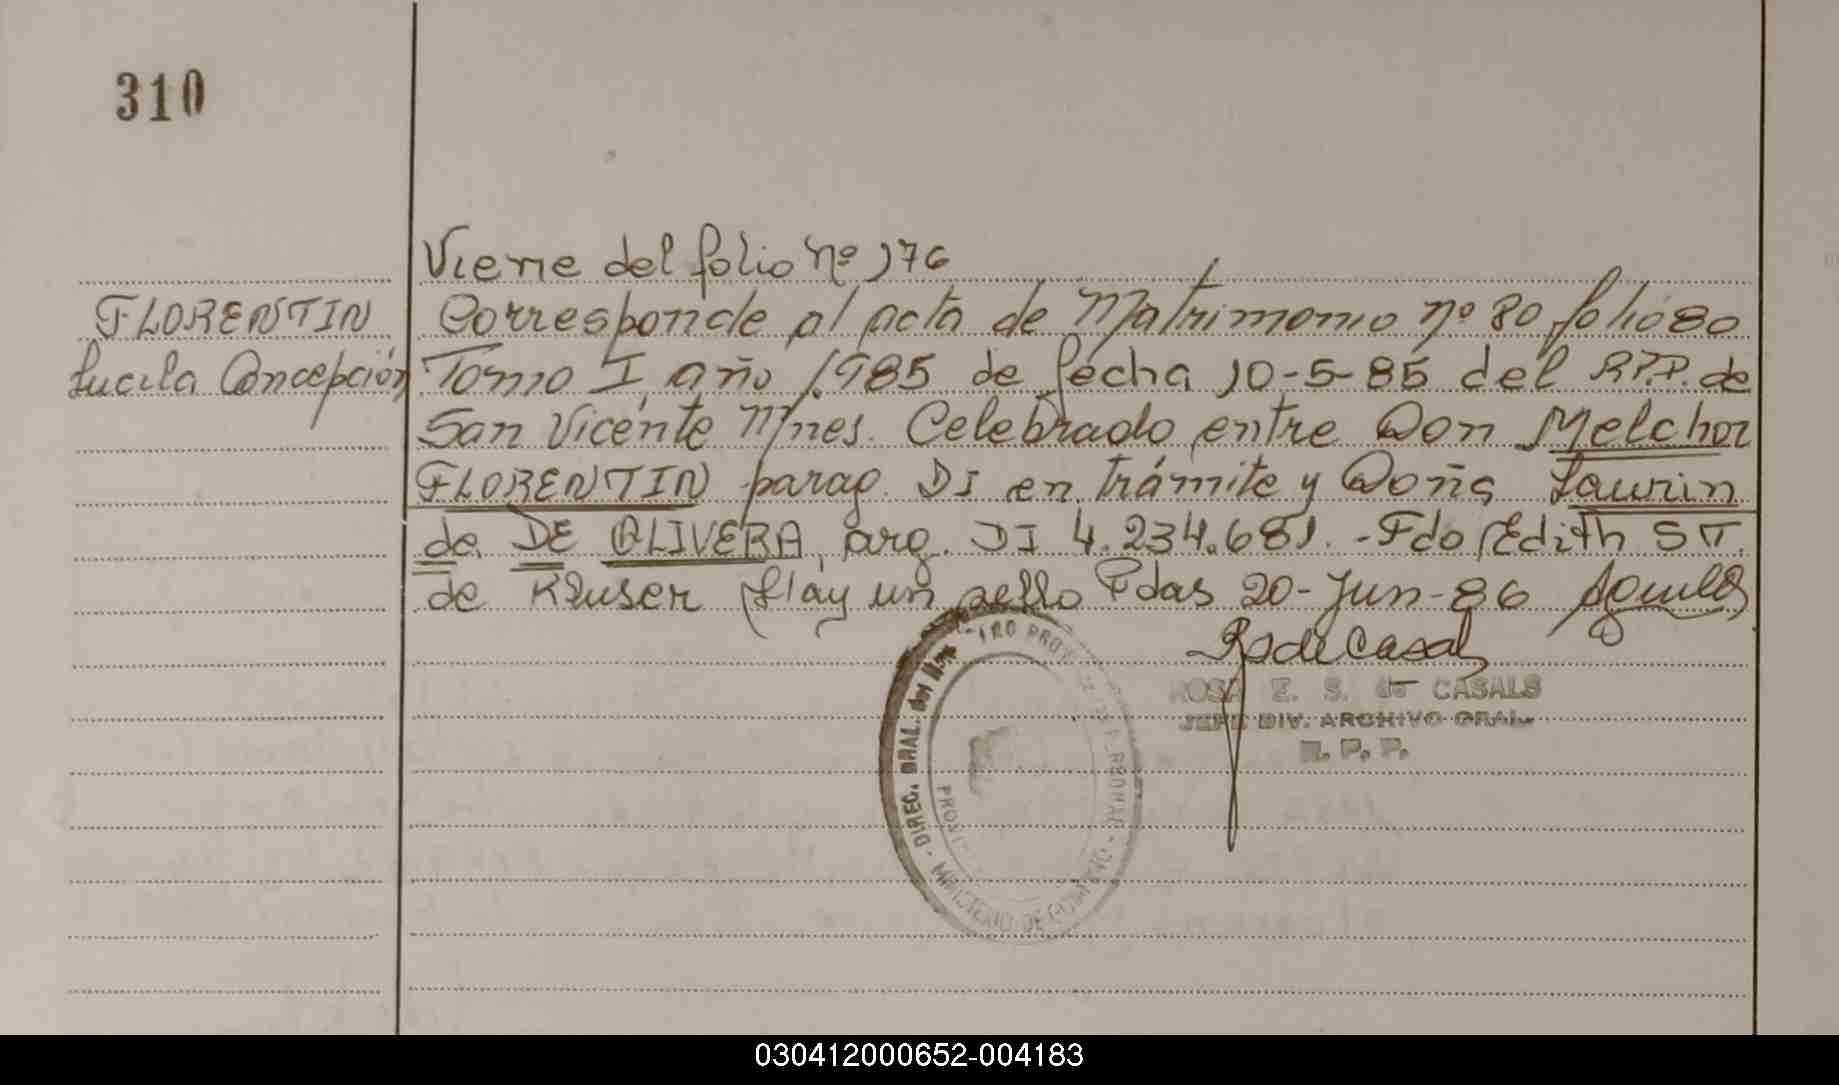 310
Viene del folio nº 176
FLORENTIN
Lucila Concepción
Corresponde al acta de Matrimonio nº 80 folio 80
Tomo I año 1985 de fecha 10-5-85 del R.P.P. de
San Vicente Mnes. Celebrado entre Don Melchor
FLORENTIN parag. DI en trámite y Doña Laurin
da DE OLIVERA, arg. DI 4.234.681. - Fdo Edith S T.
de Kruser Hay un sello Pdas 20-Jun-86
R de Casals
ROSA E. S. de CASALS
JEFE DIV. ARCHIVO GRAL.
R. P. P.
DIREC. GRAL. del PROV. DE PERSONAS
MINISTERIO DE GOBIERNO
030412000652-004183